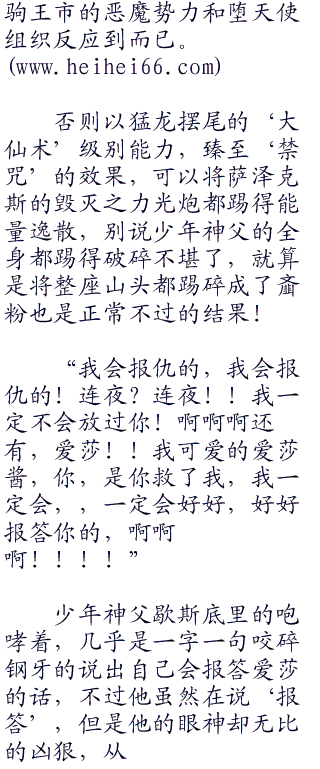 驹王市的恶魔势力和堕天使
组织反应到而已。
(www.heihei66.com)
否则以猛龙摆尾的‘大
仙术’级别能力，臻至‘禁
咒’的效果，可以将萨泽克
斯的毁灭之力光炮都踢得能
量逸散，别说少年神父的全
身都踢得破碎不堪了，就算
是将整座山头都踢碎成了齑
粉也是正常不过的结果！
“我会报仇的，我会报
仇的！连夜？连夜！！我一
定不会放过你！啊啊啊还
有，爱莎！！我可爱的爱莎
酱，你，是你救了我，我一
定会，，一定会好好，好好
报答你的，啊啊
啊！！！！”
少年神父歇斯底里的咆
哮着，几乎是一字一句咬碎
钢牙的说出自己会报答爱莎
的话，不过他虽然在说‘报
答’，但是他的眼神却无比
的凶狠，从